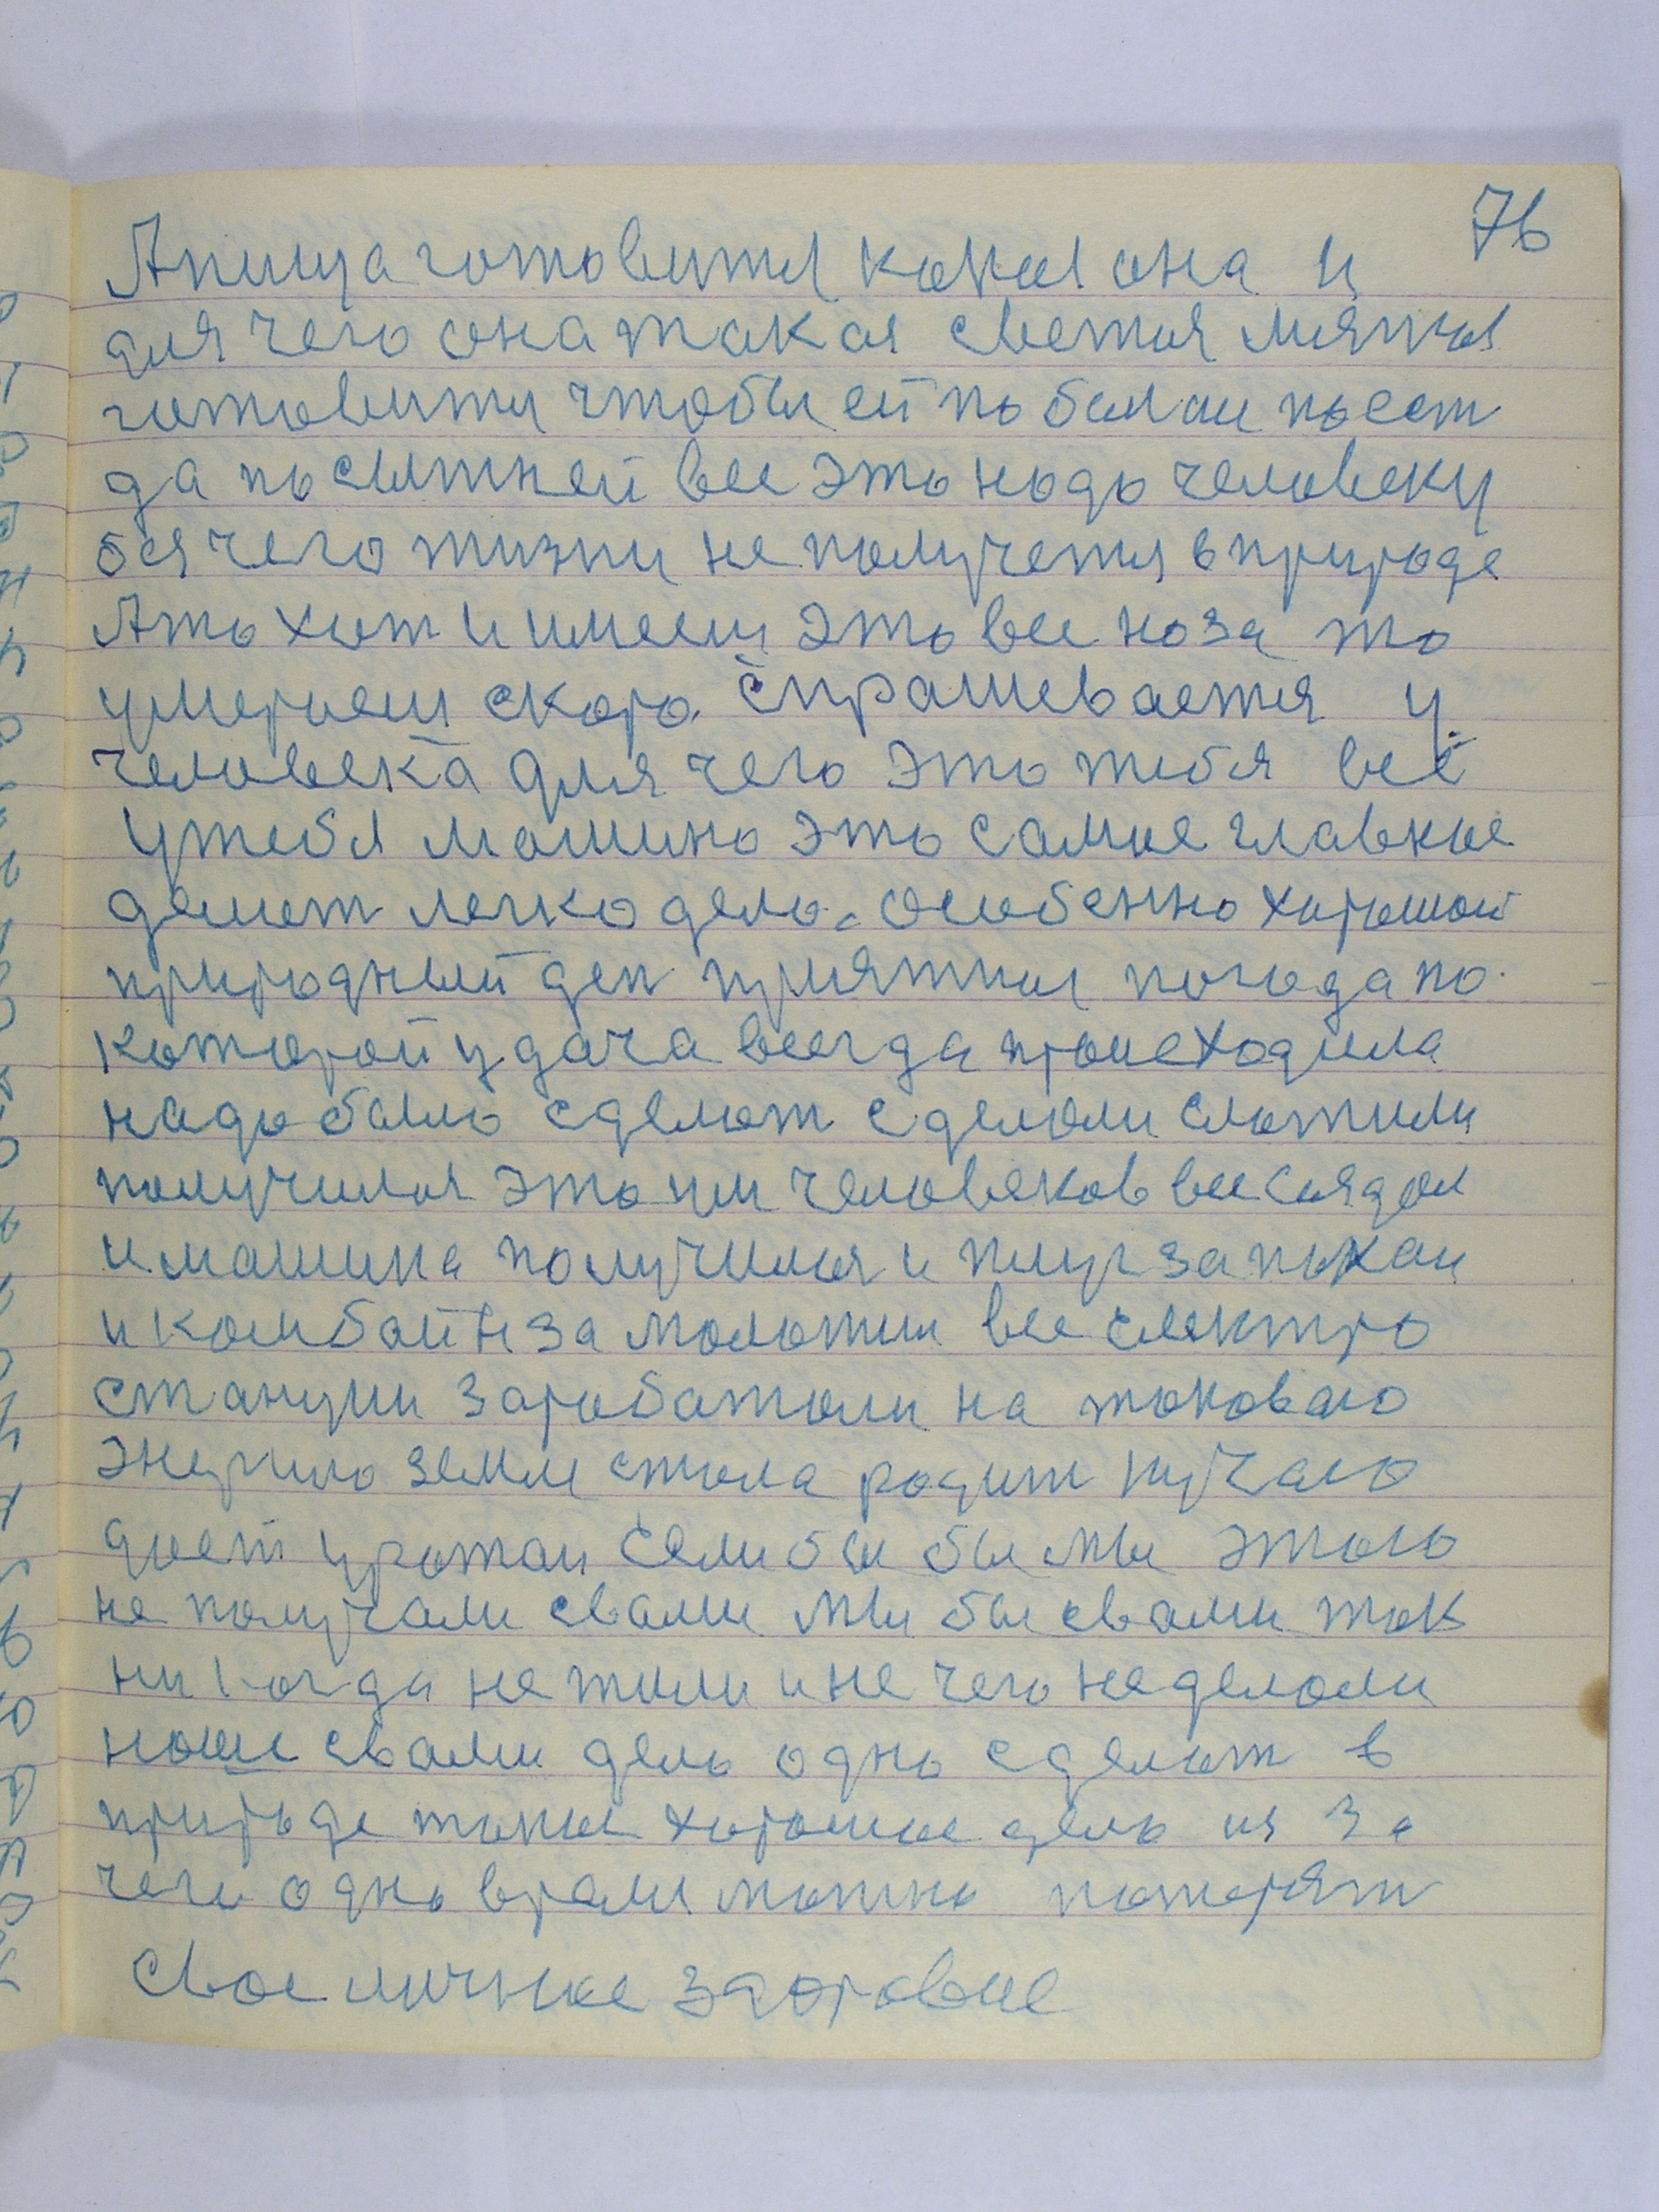 76
Апища готовитя какоя она и
для чего она такая светия мяткия
готовити чтобы ей по болши поест
да по сытней все это надо человеку
бся чего жизни не получетя в природе
Ато хот и имееш это все на за то
умераеш скоро. Спрашевается у
человека для чего это тебя всё
утебя машино это самые главные
делает легко дело. особенно хорошой
природный ден приятная погода по
каторой удача всегда происходила
надо было сделат сделали слажили
получился это им человеков все сидял
и машина получился и плуг запахал
и комбайн за молотил все електро
станции заработали на таковаю
энергию земля стала родит лучаю
дает урожаи Если бы бы мы этого
не получали свами мы бы свами так
никогда не жили и не чего не делали
наше свами дело одно сделат в
природе такие хорошие дело из за
чего одно время можно потерят
свое личное здоровие